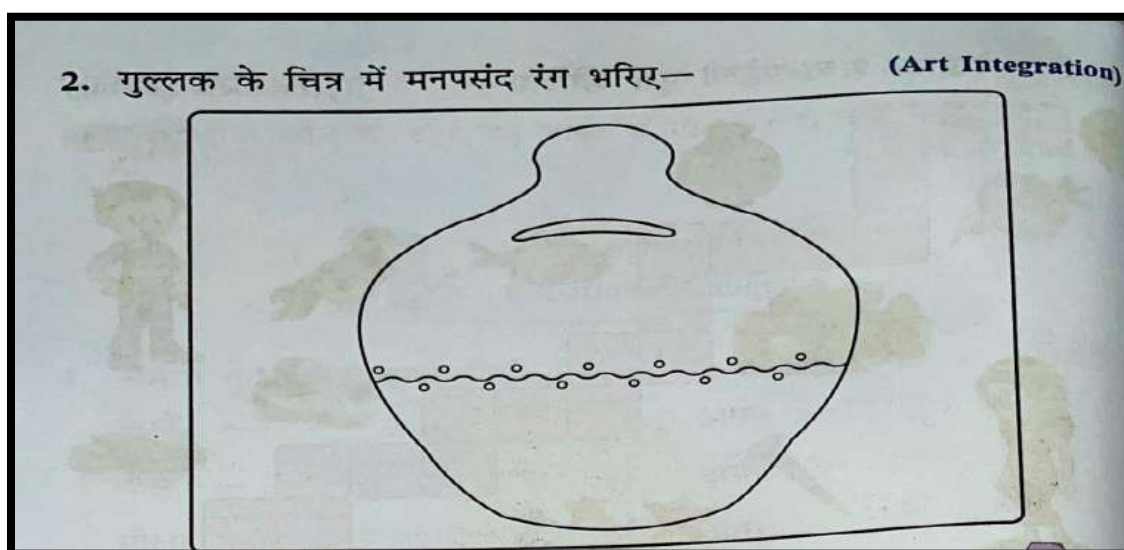 2. गुल्लक के चित्र में मनपसंद रंग भरिए— (Art Integration)